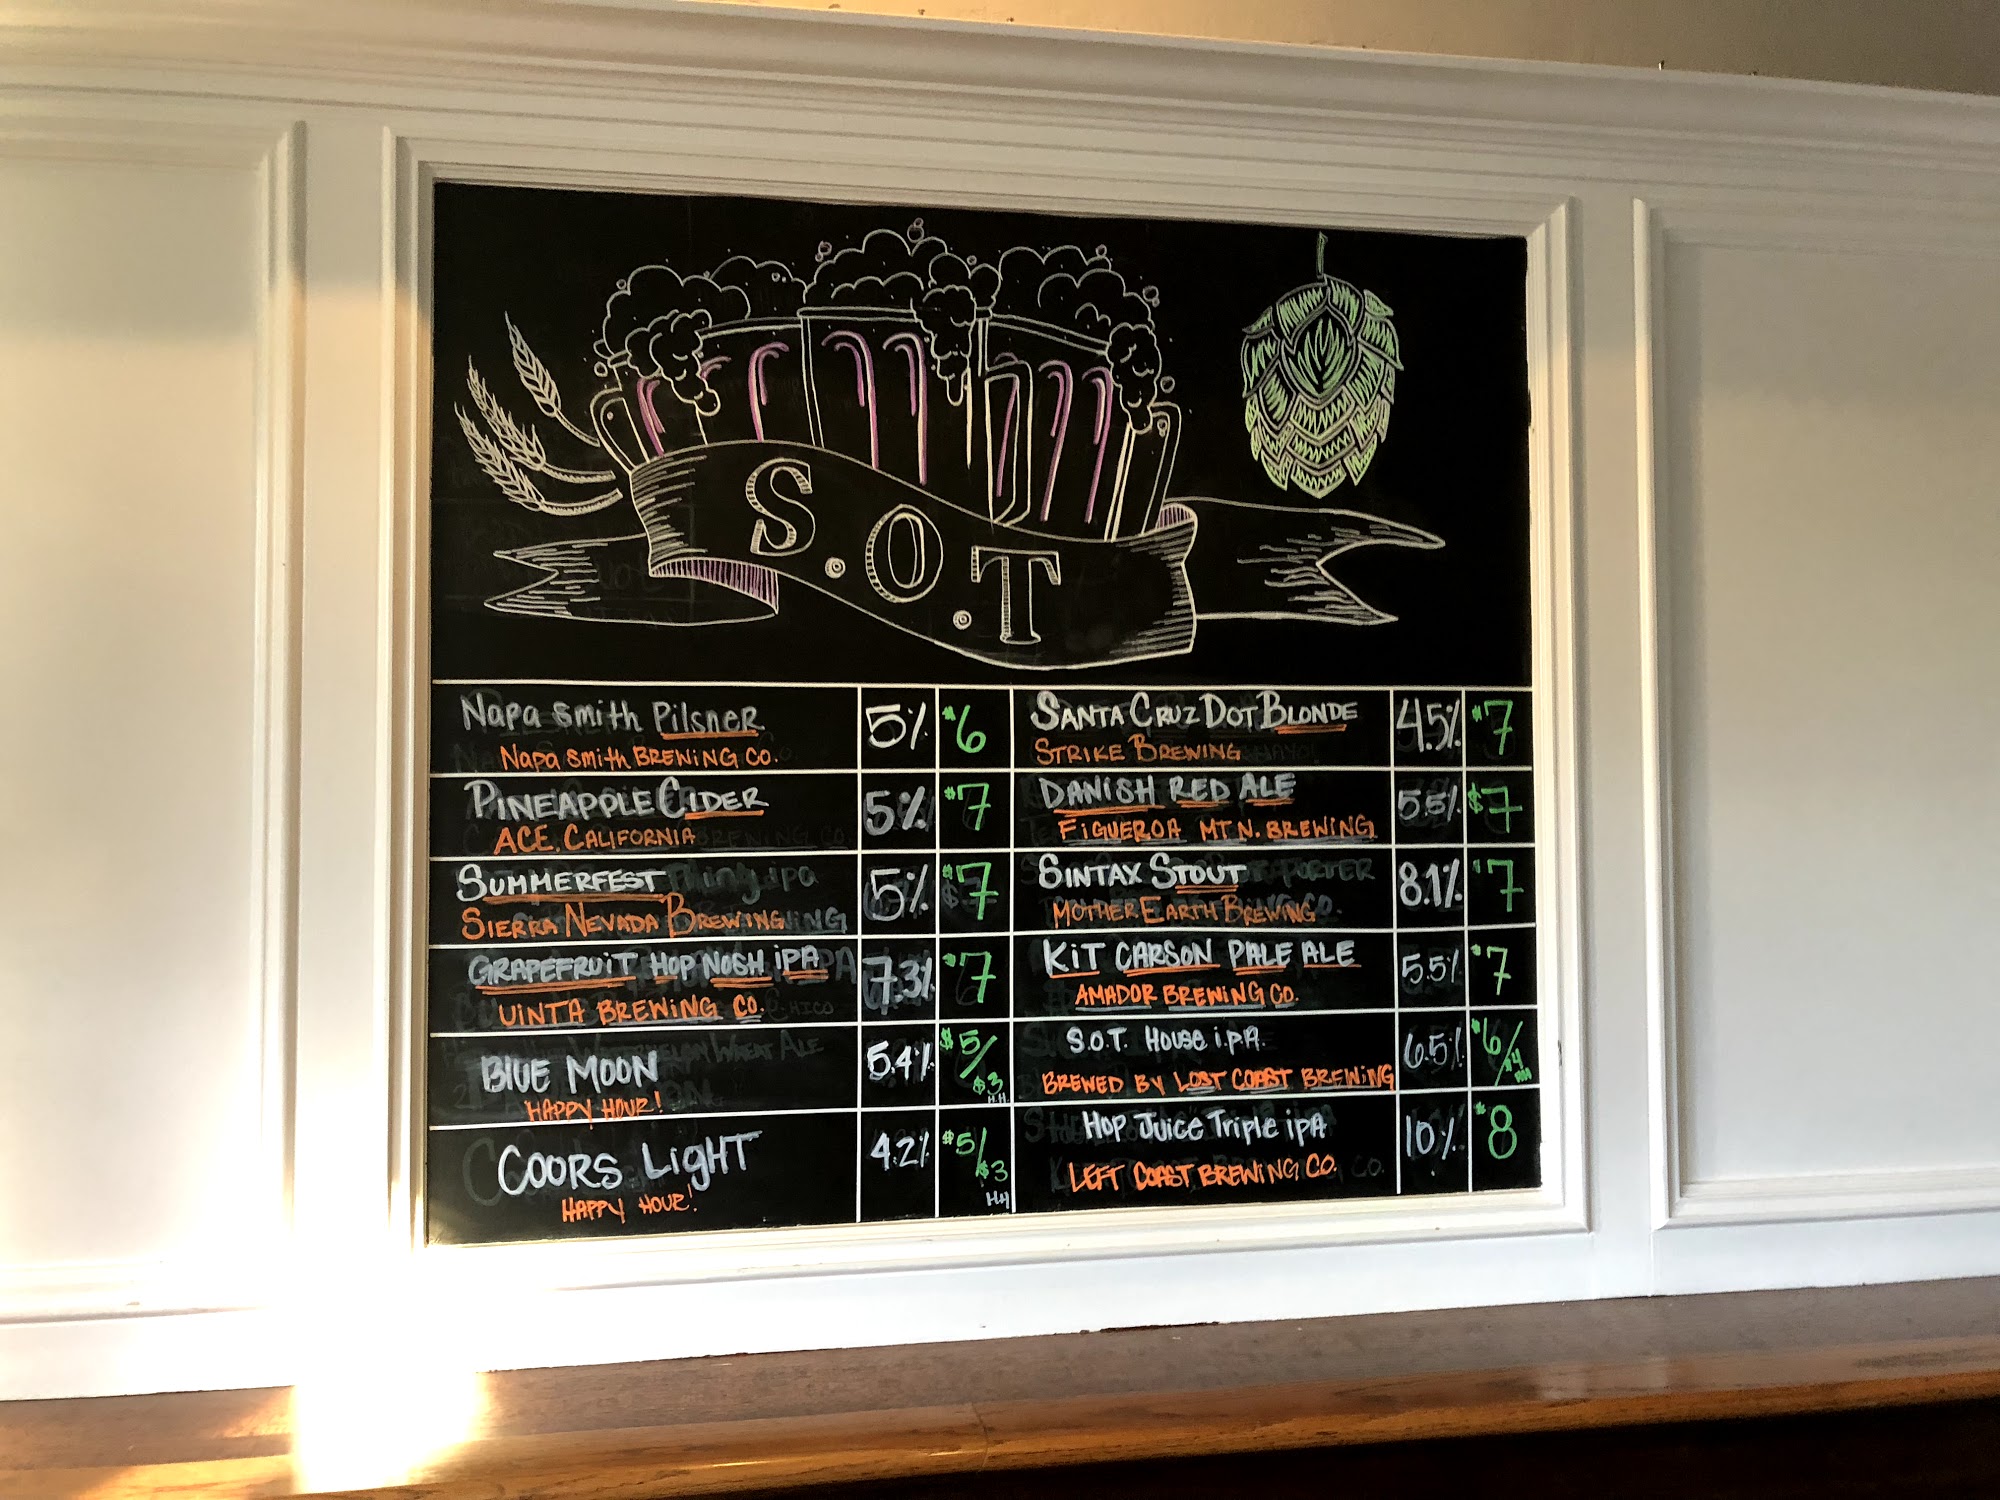 S.O.T
Napa Smith Pilsner 5% $6
Napa Smith BREWING CO.
PINEAPPLE CIDER 5% $7
ACE. CALIFORNIA
SUMMERFEST 5% $7
SIERRA NEVADA BREWING
GRAPEFRUIT HOP NOSH iPA 7.3% $7
UINTA BREWING CO.
BLUE MOON 5.4% $5/$3 H.H
HAPPY HOUR!
COORS LIGHT 4.2% $5/$3 HH
HAPPY HOUR!
SANTA CRUZ DOT BLONDE 4.5% $7
STRIKE BREWING
DANISH RED ALE 5.5% $7
FIGUEROA MTN. BREWING
SINTAX STOUT 8.1% $7
MOTHER EARTH BREWING
KIT CARSON PALE ALE 5.5% $7
AMADOR BREWING CO.
S.O.T. HOUSE i.P.A. 6.5% $6/$4 HH
BREWED BY LOST COAST BREWING
HOP JUICE TRIPLE iPA 10% $8
LEFT COAST BREWING CO.